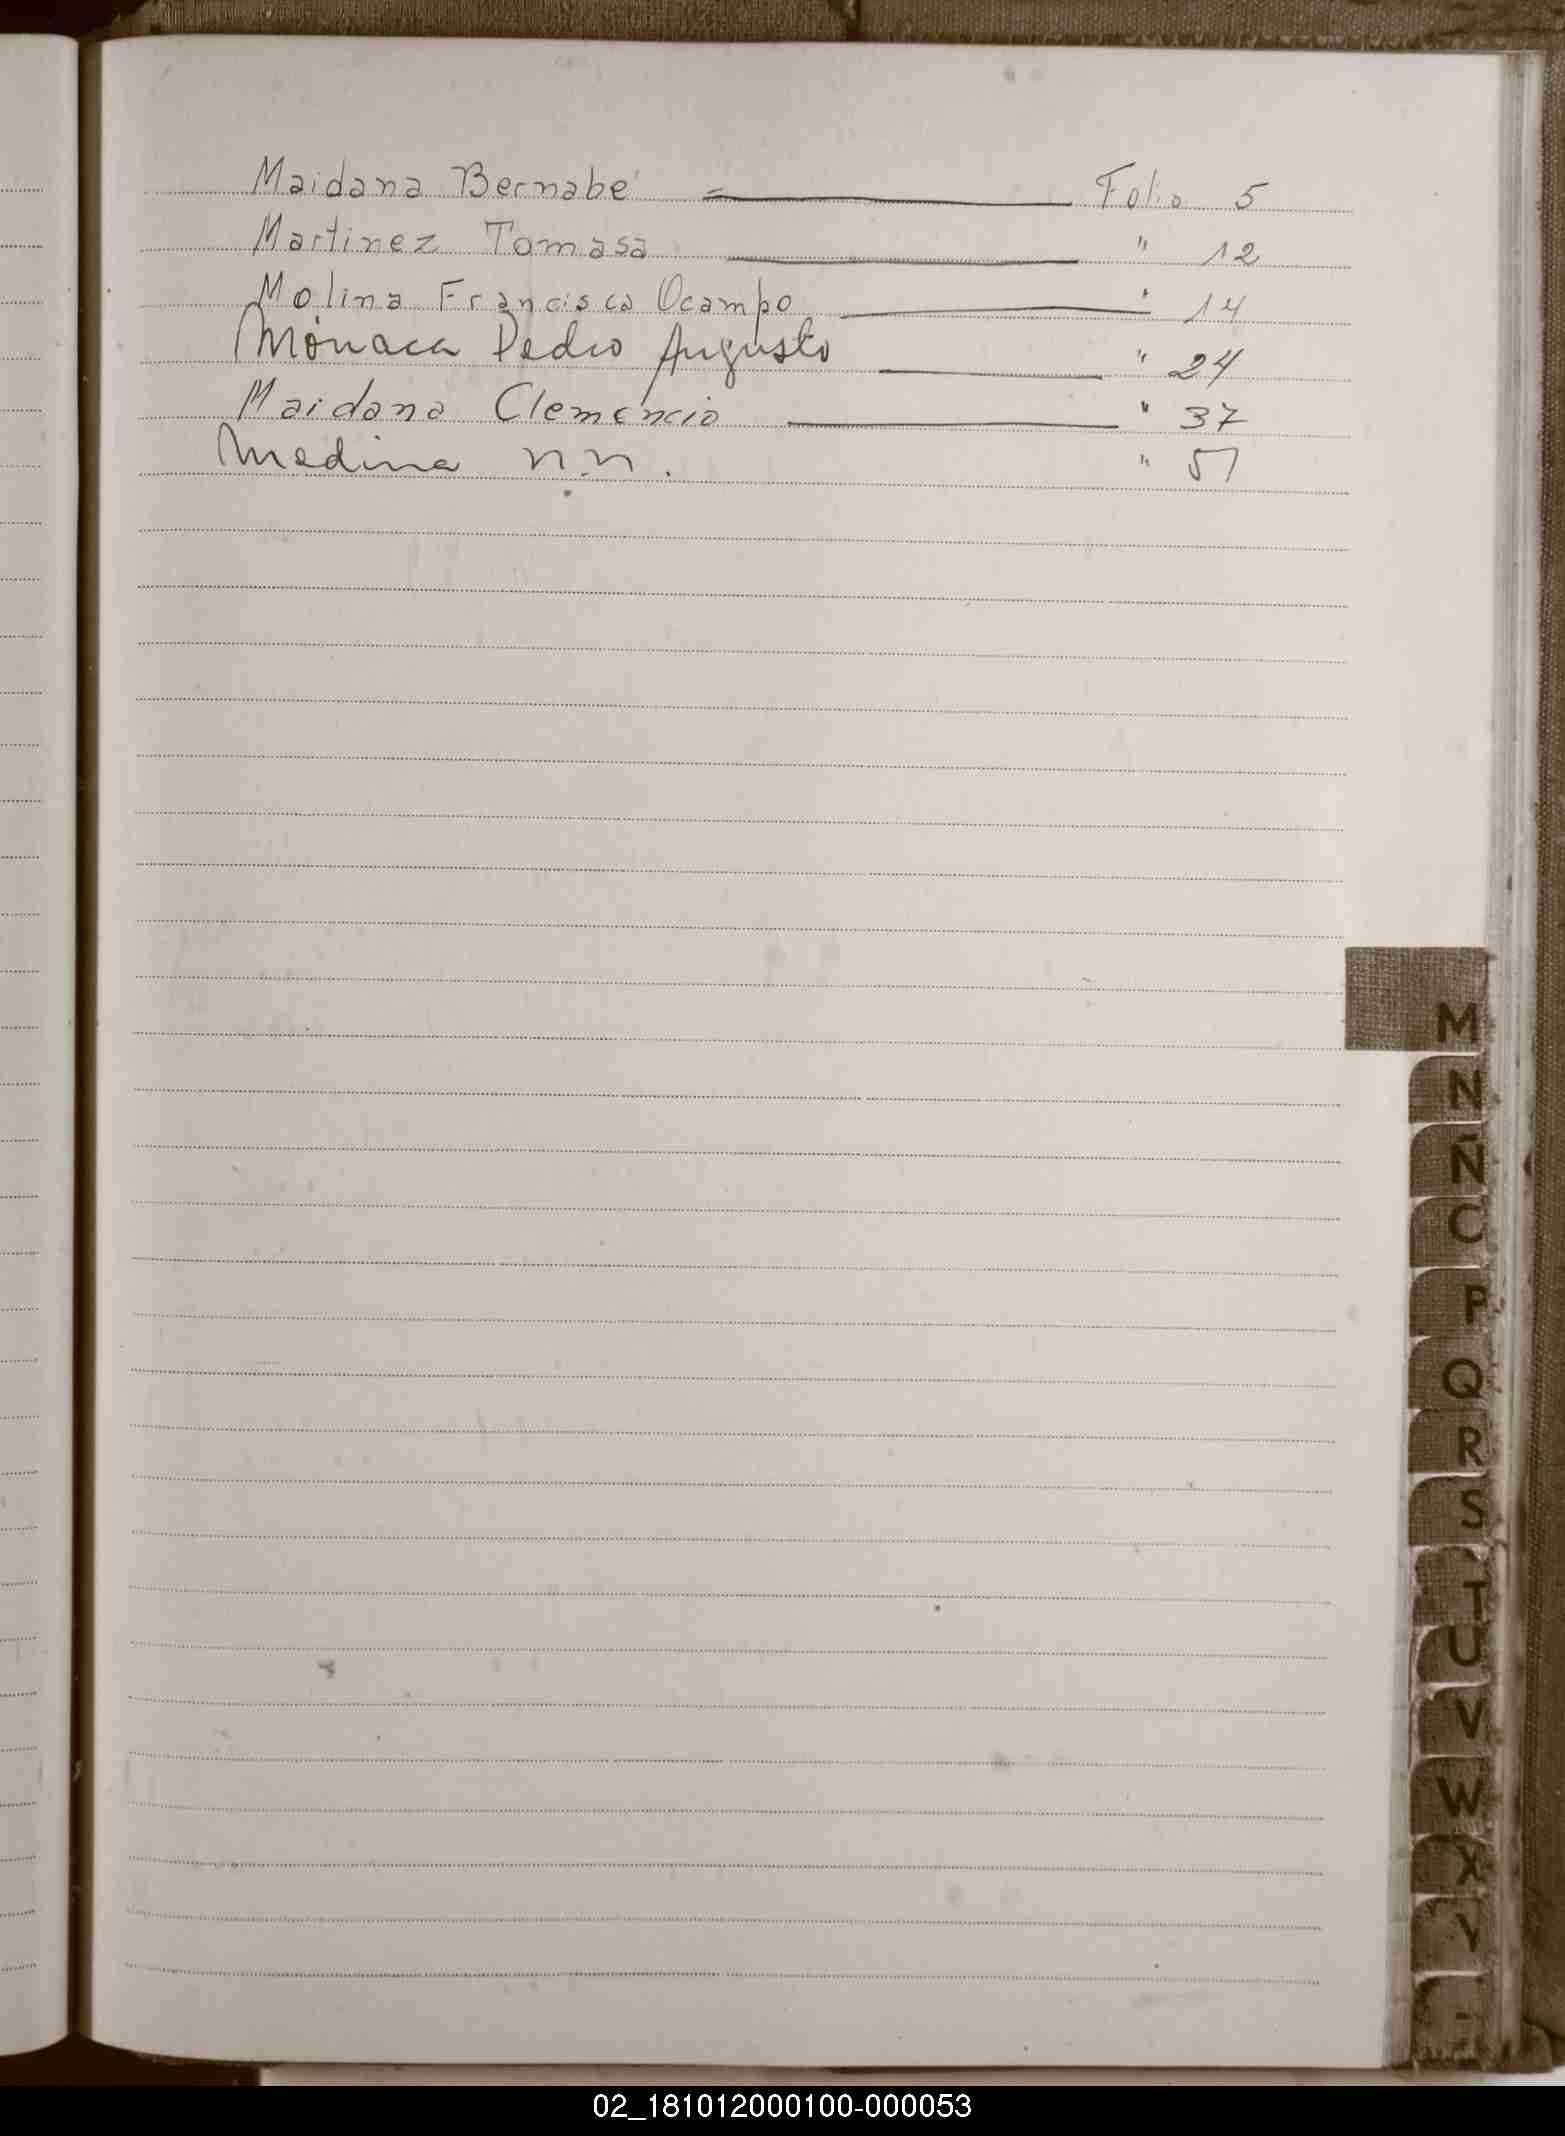 Maidana Bernabé = Folio 5
Martinez Tomasa " 12
Molina Francisca Ocampo " 14
Mónaca Pedro Augusto " 24
Maidana Clemencio " 37
Medina n.n. " 51
M
N
Ñ
O
P
Q
R
S
T
U
V
W
X
Y
02_181012000100-000053